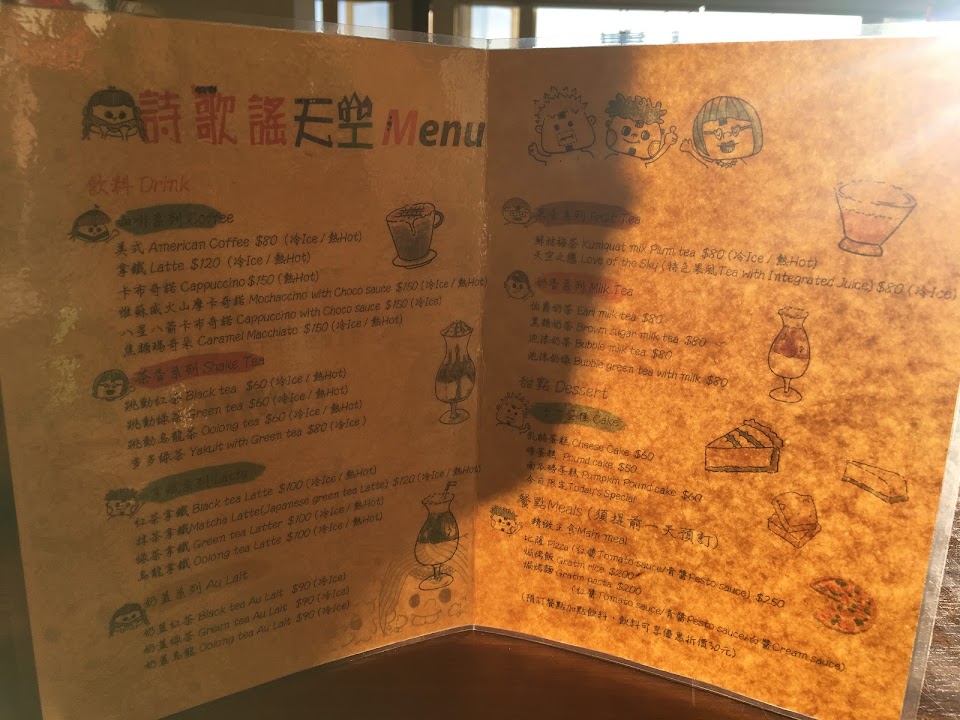 詩歌謠天空 Menu
飲料 Drink
咖啡系列 Coffee
美式 American Coffee $80 (冷Ice / 熱Hot)
拿鐵 Latte $120 (冷Ice / 熱Hot)
卡布奇諾 Cappuccino $150 (熱Hot)
維蘇威火山摩卡奇諾 Mochaccino with Choco sauce $150 (冷Ice / 熱Hot)
八星八箭卡布奇諾 Cappuccino with Choco sauce $150 (冷Ice)
焦糖瑪奇朵 Caramel Macchiato $150 (冷Ice / 熱Hot)
茶香系列 Shake Tea
跳動紅茶 Black tea $60 (冷Ice / 熱Hot)
跳動綠茶 Green tea $60 (冷Ice / 熱Hot)
跳動烏龍茶 Oolong tea $60 (冷Ice / 熱Hot)
多多綠茶 Yakult with Green tea $80 (冷Ice )
拿鐵系列
紅茶拿鐵 Black tea Latte $100 (冷Ice / 熱Hot)
抹茶拿鐵 Matcha Latte(Japanese green tea Latte) $120 (冷Ice / 熱Hot)
綠茶拿鐵 Green tea Latter $100 (冷Ice / 熱Hot)
烏龍拿鐵 Oolong tea Latte $100 (冷Ice / 熱Hot)
奶蓋系列 Au Lait
奶蓋紅茶 Black tea Au Lait $90 (冷Ice)
奶蓋綠茶 Green tea Au Lait $90 (冷Ice)
奶蓋烏龍 Oolong tea Au Lait $90 (冷Ice)
果香系列 Fruit Tea
鮮桔梅茶 Kumquat mix Plum tea $80 (冷Ice / 熱Hot)
天空之戀 Love of the Sky (特色果風Tea with Integrated Juice) $80 (冷Ice)
奶香系列 Milk Tea
伯爵奶茶 Earl milk tea $80
黑糖奶茶 Brown sugar milk tea $80
泡沫奶茶 Bubble milk tea $80
泡沫奶綠 Bubble green tea with milk $80
甜點 Dessert
Cake
乳酪蛋糕 Cheese Cake $60
磅蛋糕 Pound cake $50
南瓜磅蛋糕 Pumpkin Pound cake $60
今日限定 Today's Special
餐點 Meals (須提前一天預訂)
精緻主食 Main meal
比薩 Pizza (紅醬Tomato sauce/青醬Pesto sauce) $250
焗烤飯 Gratin rice $200
焗烤麵 Gratin pasta $200
(紅醬Tomato sauce/青醬Pesto sauce/白醬Cream sauce)
(預訂餐點加點飲料，飲料可享優惠折價30元)